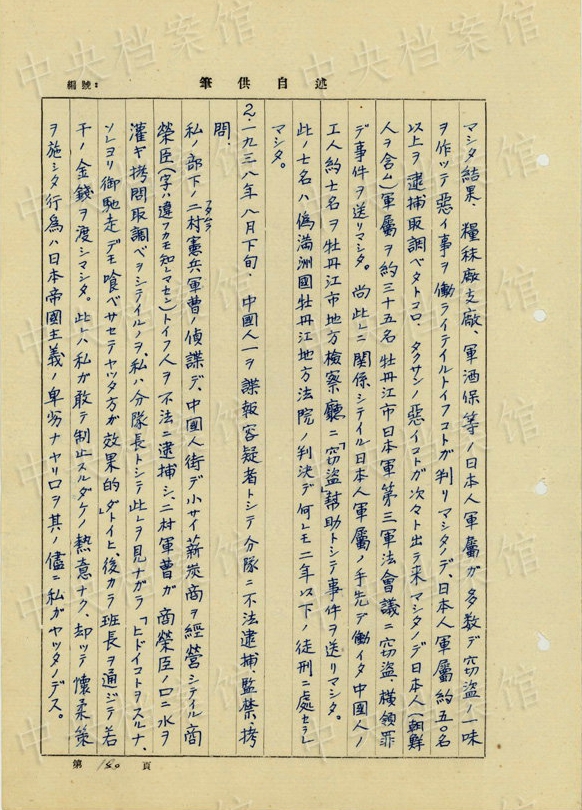 述自供筆
編號：
マシタ結果　糧秣廠支廠、軍酒保等ノ日本人軍屬ガ多数デ窃盗ノ一味
ヲ作ッテ惡イ事ヲ働ライテイルトイフコトガ判リマシタノデ、日本人軍屬約五〇名
以上ヲ逮捕取調ベタトコロ、タクサンノ惡イコトガ次々ト出テ来マシタノデ日本人（朝鮮
人ヲ含ム）軍屬ヲ約三十五名牡丹江市日本軍第三軍法會議ニ窃盗、横領罪
デ事件ヲ送リマシタ。尚此レニ関係シテイル日本人軍屬ノ手先デ働イタ中國人ノ
工人約七名ヲ牡丹江市地方検察廳ニ「窃盗」幇助トシテ事件ヲ送リマシタ。
此ノ七名ハ偽満洲國牡丹江地方法院ノ判決デ何レモ二年以下ノ徒刑ニ處セラレ
マシタ。
2.一九三八年八月下旬、中國人一ヲ諜報容疑者トシテ分隊ニ不法逮捕監禁、拷
問.
私ノ部下ノ二村憲兵軍曹ノ偵諜デ、中國人街デ小サイ薪炭商ヲ經営シテイル商
榮臣（字ハ違フカモ知レマセン）トイフ人ヲ不法ニ逮捕シ、二村軍曹ガ商榮臣ノ口ニ水ヲ
灌ギ拷問取調ベヲシテイルノヲ、私ハ分隊長トシテ此レヲ見ナガラ「ヒドイコトヲスルナ、
ソレヨリ御馳走デモ喰ベサセテヤッタ方ガ効果的ダ」トイヒ、後カラ班長ヲ通ジテ若
干ノ金錢ヲ渡シマシタ。此レハ私ガ敢テ制止スルダケノ熱意ナク、却ッテ懐柔策
ヲ施シタ行為ハ日本帝國主義ノ卑劣ナヤリ口ヲ其ノ儘ニ私ガヤッタノデス。
第180頁
中央档案馆